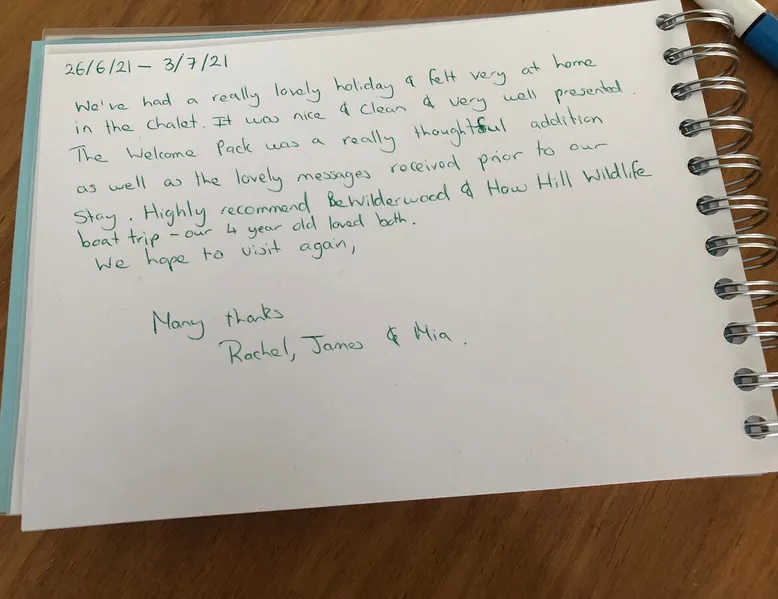 26/6/21 – 3/7/21
We've had a really lovely holiday & felt very at home
in the chalet. It was nice & clean & very well presented.
The Welcome Pack was a really thoughtful addition
as well as the lovely messages received prior to our
stay. Highly recommend BeWilderwood & How Hill Wildlife
boat trip – our 4 year old loved both.
We hope to visit again,
Many thanks
Rachel, James & Mia.